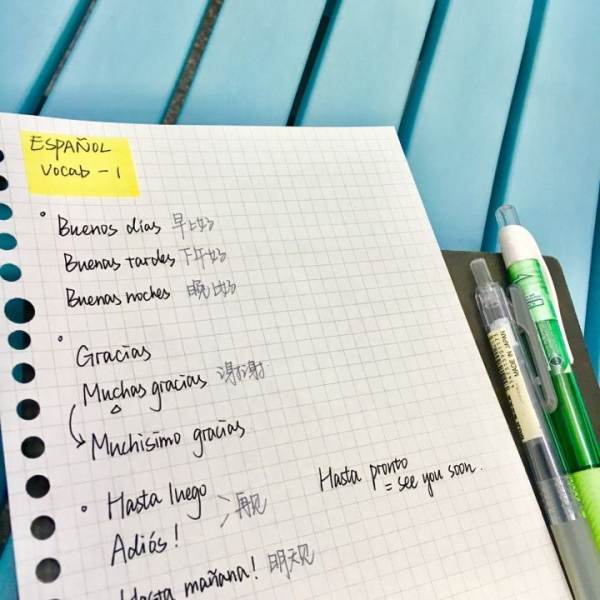 ESPAÑOL
Vocab - 1
Buenos días 早上好
Buenas tardes 下午好
Buenas noches 晚上好
Gracias
Muchas gracias 谢谢
Muchisimo gracias
Hasta luego
Adiós! 再见
Hasta pronto
= see you soon.
Hasta mañana! 明天见
MADE IN JAPAN